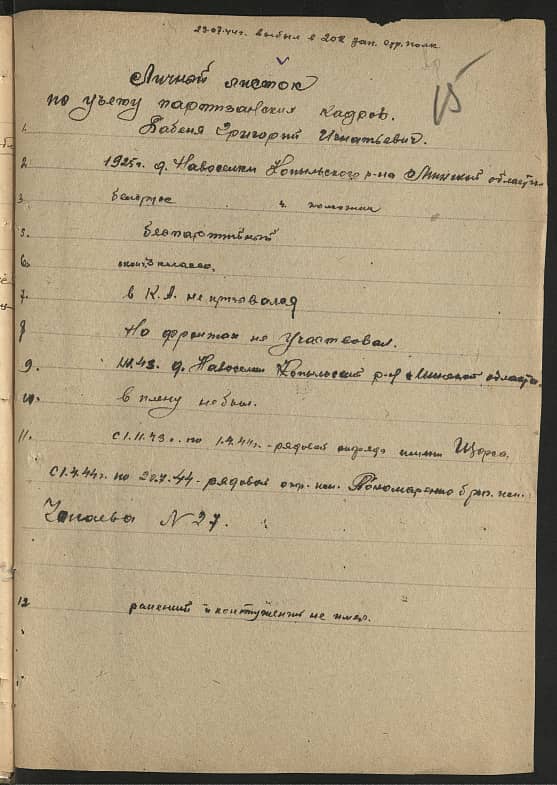 23.07.44г. выбыл в 202 зап. стр. полк
15
Личный листок
по учету партизанских кадров.
1. Бабеня Григорий Игнатьевич.
2. 1925г. д. Навоселки Копыльского р-на Минской области.
3. белорус 4.
5. беспартийный
6. класса.
7. в К.А. не призывался
8 На фронтах не участвовал.
9. III.43. д. Навоселки Копыльский р-н Минской области.
10. в плену не был.
11. с 1.11.43г. по 1.4.44г. - рядовой отряда имени Щорса.
с 1.4.44г. по 20.7.44 - рядовой отр. им. Пономаренко бриг. им.
Чапаева N 27.
12 ранений и контужений не имел.